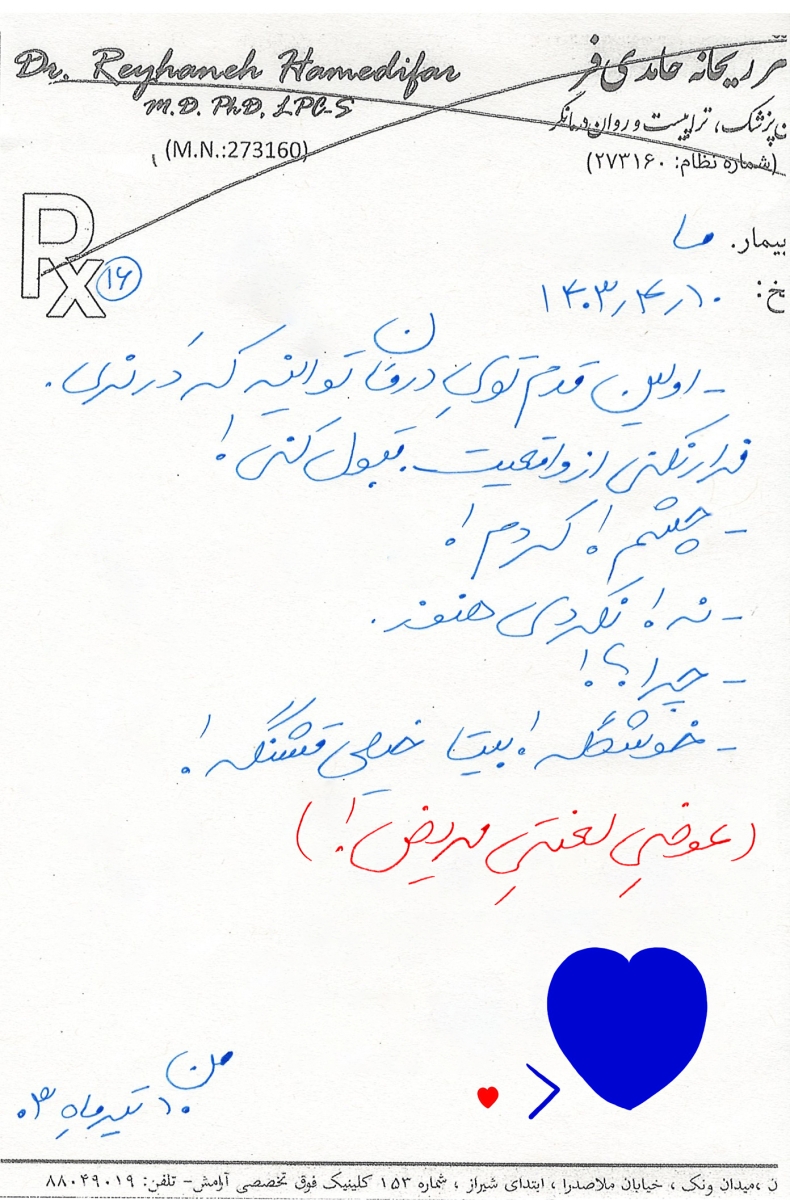 Dr. Reyhaneh Hamedifar
M.D. PhD. LPC-S
(M.N.:273160)
ر ریحانه حامدی فر
پزشک، تراپیست و روان درمانگر
(شماره نظام: ۲۷۳۱۶۰)
بیمار. ما
خ: ۱۴۰۳٫۴٫۱۰
Rx ۱۶
- اولین قدم توی درمان تو اینه که در نری.
فرار نکنی از واقعیت. قبول کنی!
- چشم! کردم!
- نه! نکردی هنوز.
- چرا؟!
- خوشگله! بیتا خیلی قشنگه!
(عوضیِ لعنتیِ مریض!)
من
۱۰ تیر ماهِ ۰۳
ن ،میدان ونک ، خیابان ملاصدرا ، ابتدای شیراز ، شماره ۱۵۳ کلینیک فوق تخصصی آرامش- تلفن: ۸۸۰۴۹۰۱۹